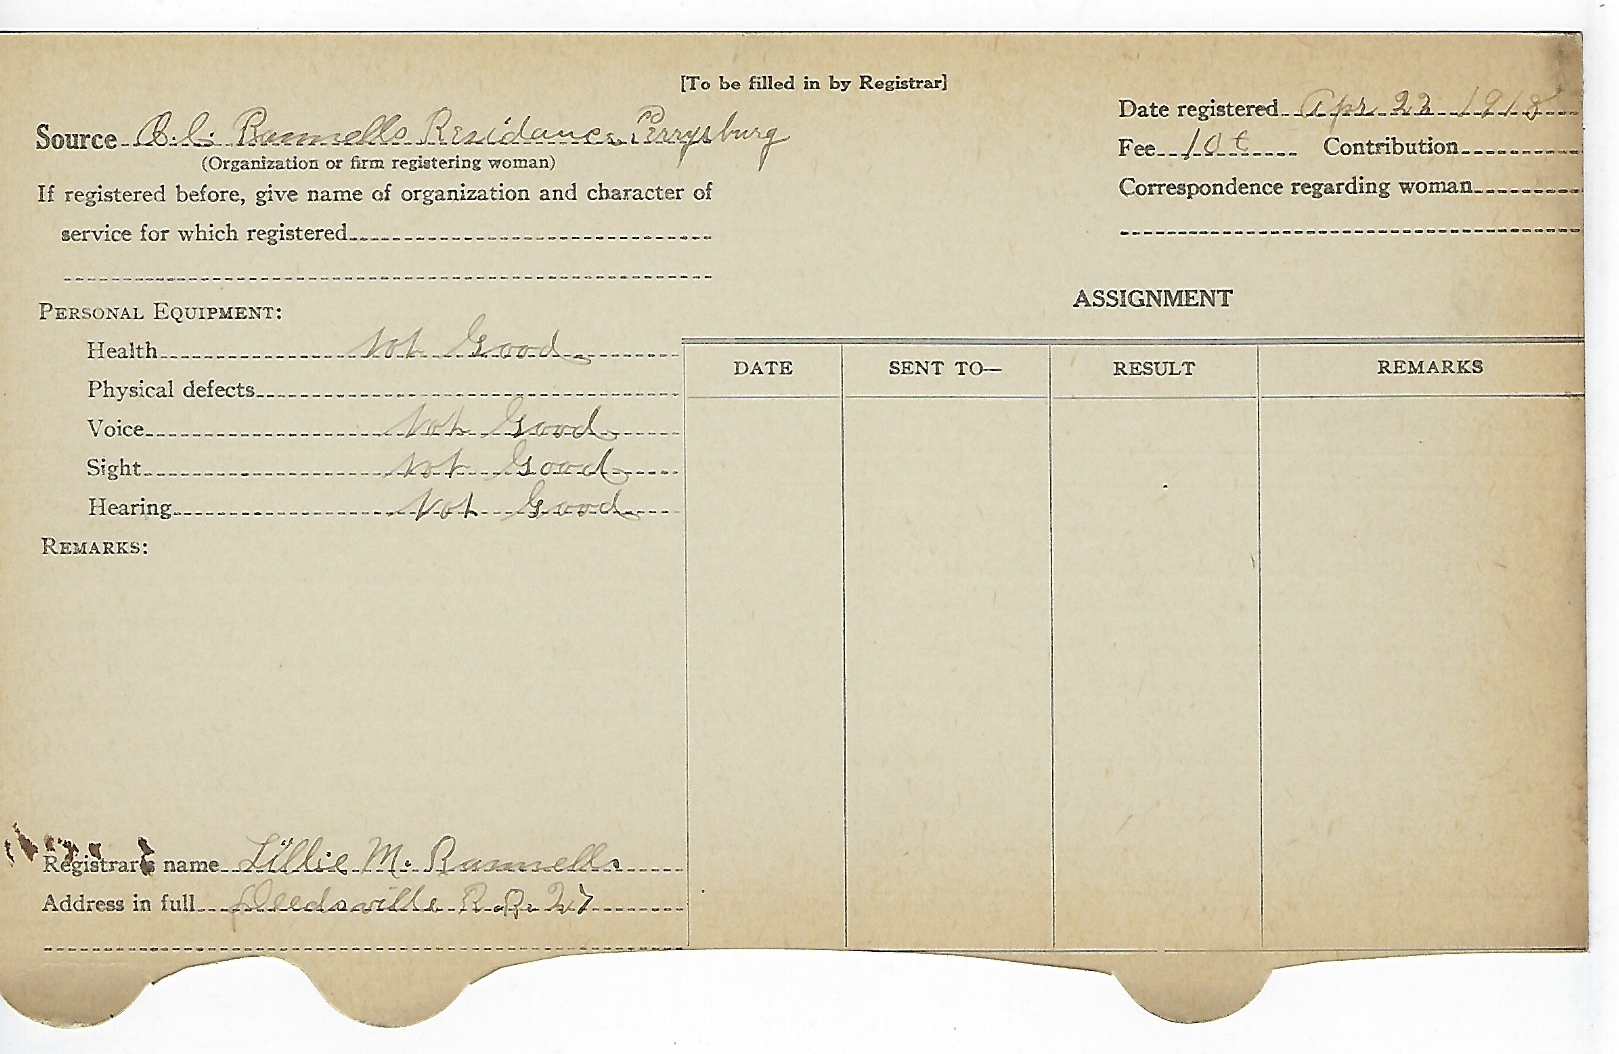 [To be filled in by Registrar]
Date registered Apr 22 1918
Source Residance Perrysburg
(Organization or firm registering woman)
Fee 10¢ Contribution
If registered before, give name of organization and character of
Correspondence regarding woman
service for which registered
ASSIGNMENT
PERSONAL EQUIPMENT:
Health Not Good
DATE SENT TO— RESULT REMARKS
Physical defects
Voice Not Good
Sight Not Good
Hearing Not Good
REMARKS:
Registrar's name Lillie M.
Address in full Deedsville R.R. 27